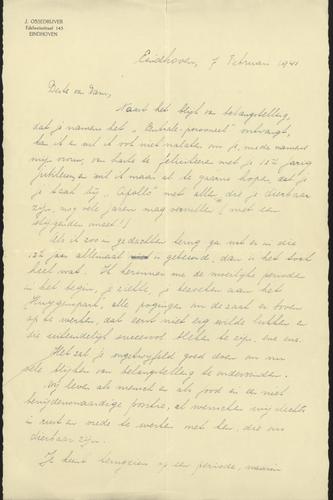 J. OSSEDRIJVER
Edelweisstraat 145
EINDHOVEN
Eindhoven, 7 Februari 1941
Beste van Dam,
Naast het blijk van belangstelling,
dat je namens het "Centrale-personeel" ontvangt,
kan ik en wil ik ook niet nalaten om je, mede namens
mijn vrouw, van harte te feliciteeren met je 12½ jarig
jubileum en wil ik maar al te gaarne hopen, dat je
je taak bij "Apollo" met allen, die je dierbaar
zijn, nog vele jaren mag vervullen (met een
stijgenden meer!)
Als ik zoo in gedachten terug ga wat er in die
12½ jaar allemaal is gebeurd, dan is het toch
heel wat. Ik herinner me de moeilijke periode
in het begin, je ziekte, je bezoeken aan het
Huygenspark, alle pogingen om de zaak er boven
op te werken, dat eerst niet erg wilde lukken en
die uiteindelijk succesvol bleken te zijn, enz. enz.
Het zal je ongetwijfeld goed doen om nu
alle blijken van belangstelling te ondervinden.
Wij leven als mensch en als jood in een niet
benijdenswaardige positie, al wenschen wij slechts
in rust en vrede te werken met hen, die ons
dierbaar zijn.
Je kunt terugzien op een periode, waarin